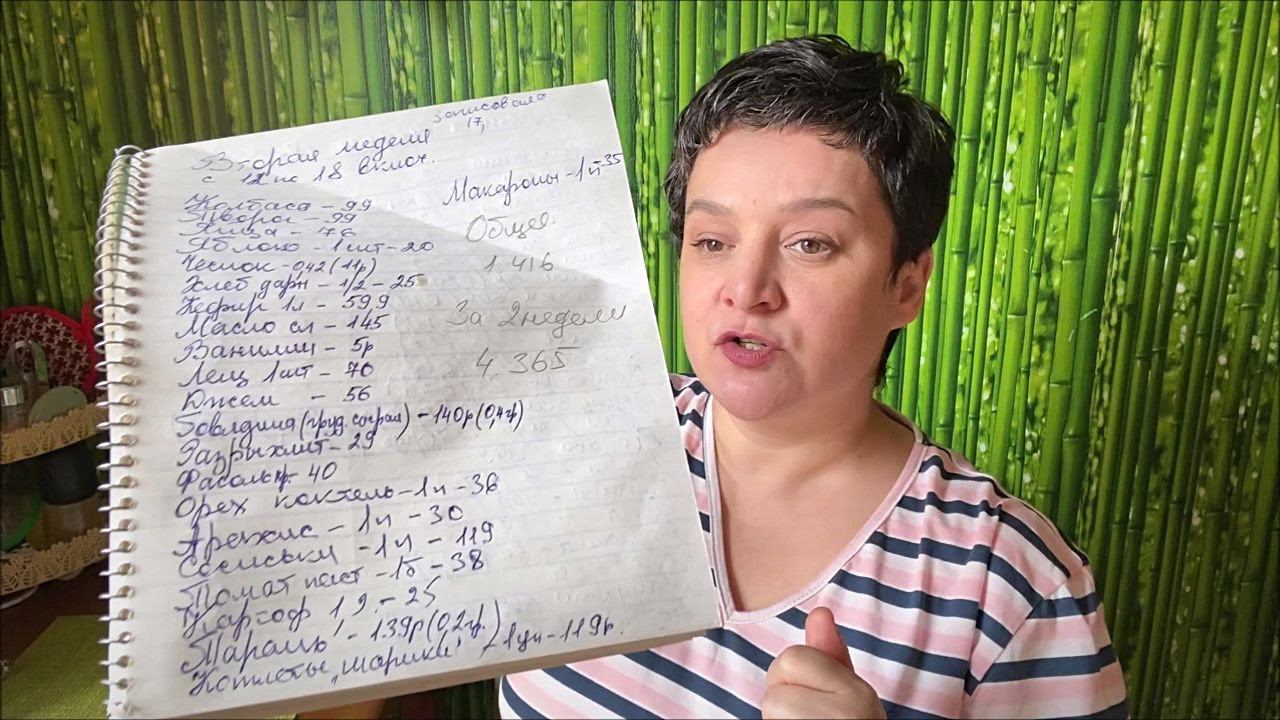 записовала
17,
Вторая неделя
с 12 по 18 включ.
Колбаса - 99
Творог - 99
Яйца - 76
Яблоко - 1 шт - 20
Чеснок - 0,42 (11р)
Хлеб дарн - 1/2 - 25
Кефир 1л - 59,9
Масло сл - 145
Ванилин - 5р
Лещ 1шт - 70
Джем - 56
Говядина (груд. сограл) - 140р (0,4гр)
Разрыхлит - 29
Фасоль кр. 40
Орех коктель - 1п - 36
Арахис - 1п - 30
Сосиськи - 1п - 119
Томат паст - 1б - 38
Картоф 1,9 - 25
Мараль - 139р (0,2гр.)
Котлеты „шарики" - 1уп - 119р.
Макароны - 1п 35
Общее
1.416
За 2 недели
4.365